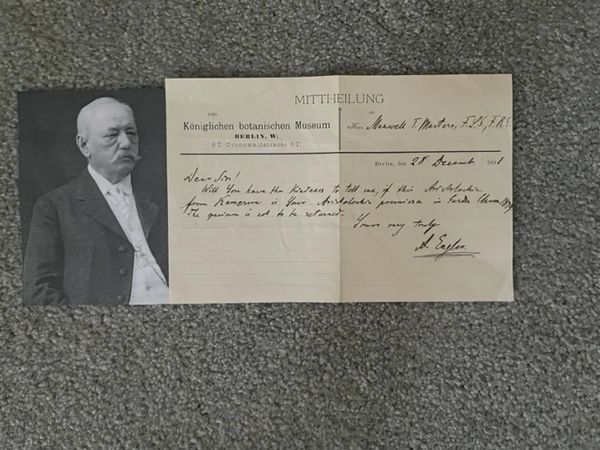 MITTHEILUNG
VOM
AN
Königlichen botanischen Museum
Herrn Maxwell T. Masters, F.L.S., F.R.S.
BERLIN, W.
6/7 Grunewaldstrasse 6/7.
Berlin, den 28 Decemb. 1891
Dear Sir!
Will You have the kindness to tell me, if this Aristolochia
from Kamerun is Your Aristolochia in Gard.
The specimen is not to be returned.
Yours very truly
A. Engler.